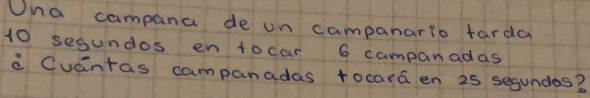 Una campana de un campanario tarda
10 segundos en tocar 6 campanadas
¿ Cuántas campanadas tocará en 25 segundos?